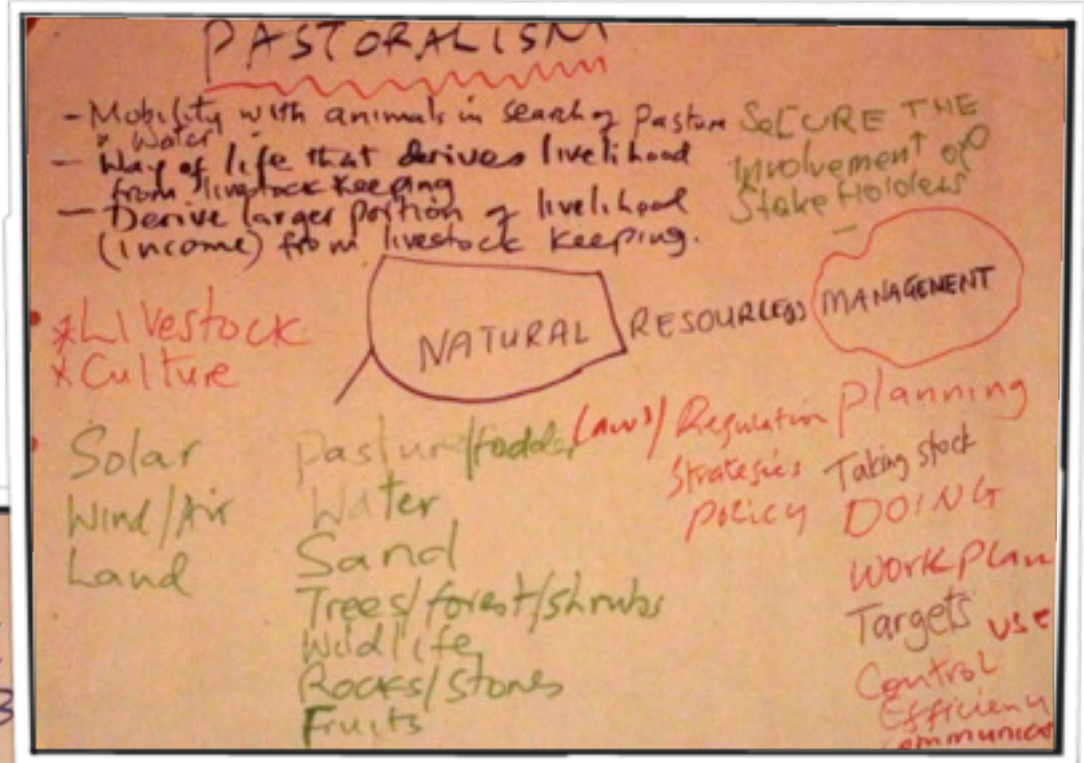 PASTORALISM
- Mobility with animals in search of Pasture
& Water
- Way of life that derives livelihood
from livestock keeping
- Derive larger portion of livelihood
(income) from livestock keeping.
SECURE THE
Involvement of
StakeHolders
*Livestock
*Culture
NATURAL RESOURCE(S) MANAGEMENT
Solar
Wind/Air
Land
Pasture/fodder
Water
Sand
Trees/forest/shrubs
Wildlife
Rocks/Stones
Fruits
Laws/Regulation
Strategies
POLICY
Planning
Taking stock
DOING
WORKPLAN
Targets use
Control
Efficiency
Communicat
3